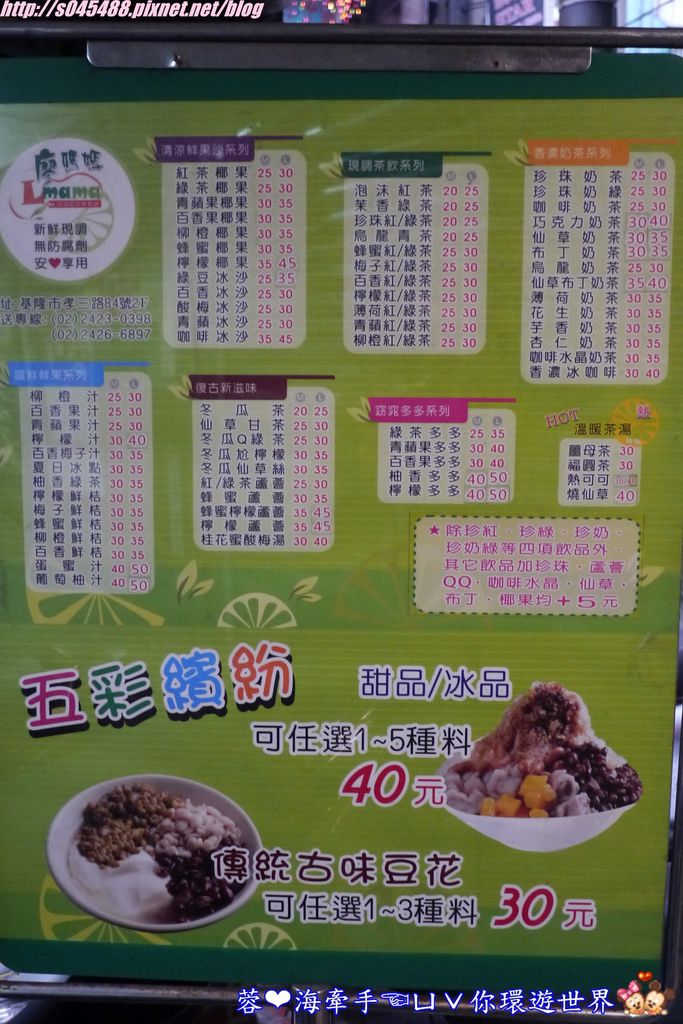 http://s045488.pixnet.net/blog
廖媽媽
Lmama
新鮮現調
無防腐劑
安♥享用
址:基隆市孝三路84號2F
送專線:(02)2423-0398
(02)2426-6897
清涼鮮果沙系列 M L
紅茶椰果 25 30
綠茶椰果 25 30
青蘋果椰果 30 35
百香果椰果 30 35
柳橙椰果 30 35
蜂蜜椰果 30 35
檸檬椰果 35 45
綠豆冰沙 25 35
百香冰沙 25 30
酸梅冰沙 25 30
青蘋冰沙 25 30
咖啡冰沙 35 45
現調茶飲系列 M L
泡沫紅茶 20 25
茉香綠茶 20 25
珍珠紅/綠茶 20 25
烏龍青茶 20 25
蜂蜜紅/綠茶 25 30
梅子紅/綠茶 25 30
百香紅/綠茶 25 30
檸檬紅/綠茶 25 30
薄荷紅/綠茶 25 30
青蘋紅/綠茶 25 30
柳橙紅/綠茶 25 30
香濃奶茶系列 M L
珍珠奶茶 25 30
珍珠奶綠 25 30
咖啡奶茶 25 30
巧克力奶茶 30 40
仙草奶茶 30 35
布丁奶茶 30 35
烏龍奶茶 25 30
仙草布丁奶茶 35 40
薄荷奶茶 30 35
花生奶茶 30 35
芋香奶茶 30 35
杏仁奶茶 30 35
咖啡水晶奶茶 30 35
香濃冰咖啡 30 40
鮮鮮果系列 M L
柳橙汁 25 30
百香果汁 25 30
青蘋果汁 25 30
檸檬汁 30 40
百香梅子汁 30 35
夏日冰點 30 35
柚香綠茶 30 35
檸檬鮮桔 30 35
梅子鮮桔 30 35
蜂蜜鮮桔 30 35
柳橙鮮桔 30 35
百香鮮桔 30 35
蛋蜜汁 40 50
葡萄柚汁 40 50
復古新滋味 M L
冬瓜茶 20 25
仙草甘茶 25 30
冬瓜Q綠茶 25 30
冬瓜尬檸檬 30 35
冬瓜仙草絲 30 35
紅/綠茶蘆薈 25 30
蜂蜜蘆薈 30 35
蜂蜜檸檬蘆薈 35 45
檸檬蘆薈 35 45
桂花蜜酸梅湯 30 40
窈窕多多系列 M L
綠茶多多 25 35
青蘋果多多 30 40
百香果多多 30 40
柚香多多 40 50
檸檬多多 40 50
HOT 熱
溫暖茶湯
薑母茶 30
福圓茶 30
熱可可
燒仙草 40
★除珍紅、珍綠、珍奶、
珍奶綠等四項飲品外、
其它飲品加珍珠．蘆薈
QQ．咖啡水晶．仙草．
布丁．椰果均＋5元
五彩繽紛
甜品/冰品
可任選1~5種料
40元
傳統古味豆花
可任選1~3種料 30元
蓉❤海牽手☜ㄩㄥ你環遊世界